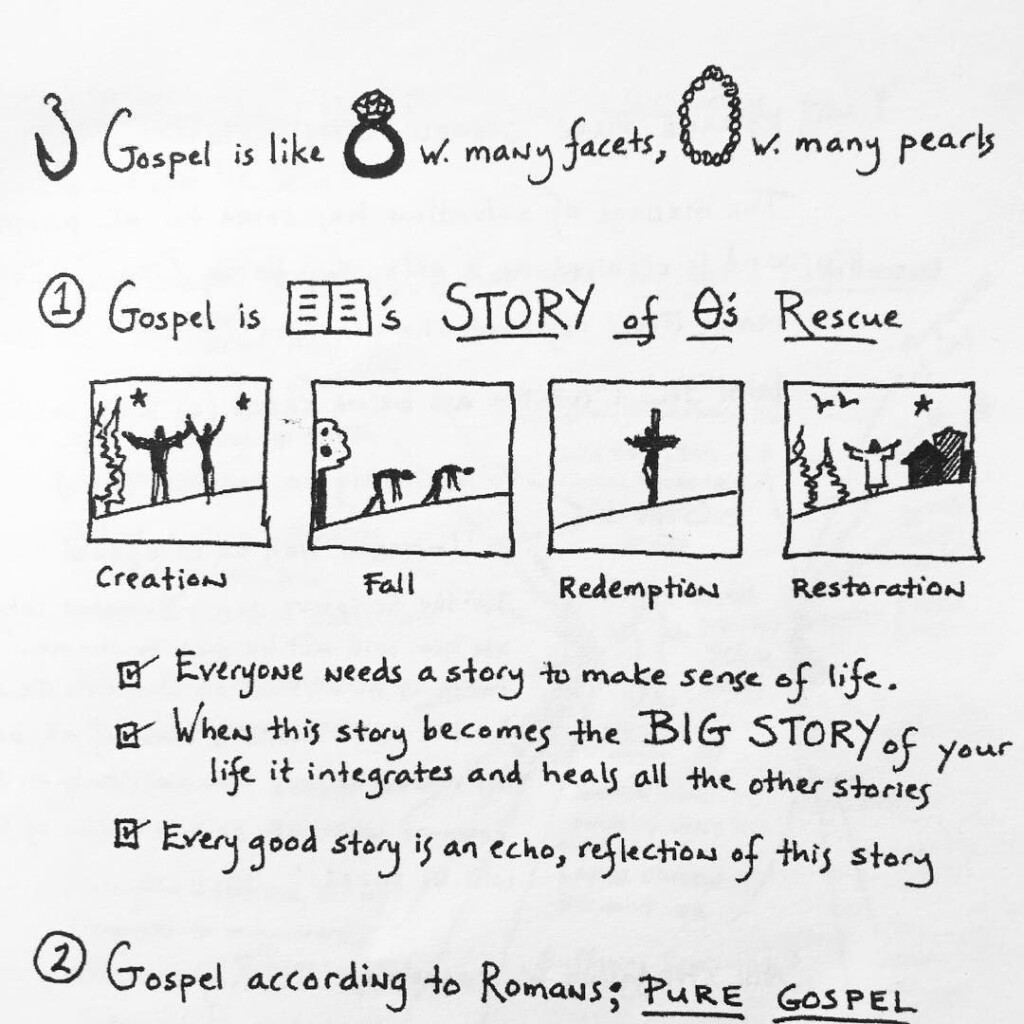 Gospel is like w. many facets, w. many pearls
① Gospel is 's STORY of θ's Rescue
Creation Fall Redemption Restoration
Everyone needs a story to make sense of life.
When this story becomes the BIG STORY of your
life it integrates and heals all the other stories
Every good story is an echo, reflection of this story
② Gospel according to Romans; PURE GOSPEL